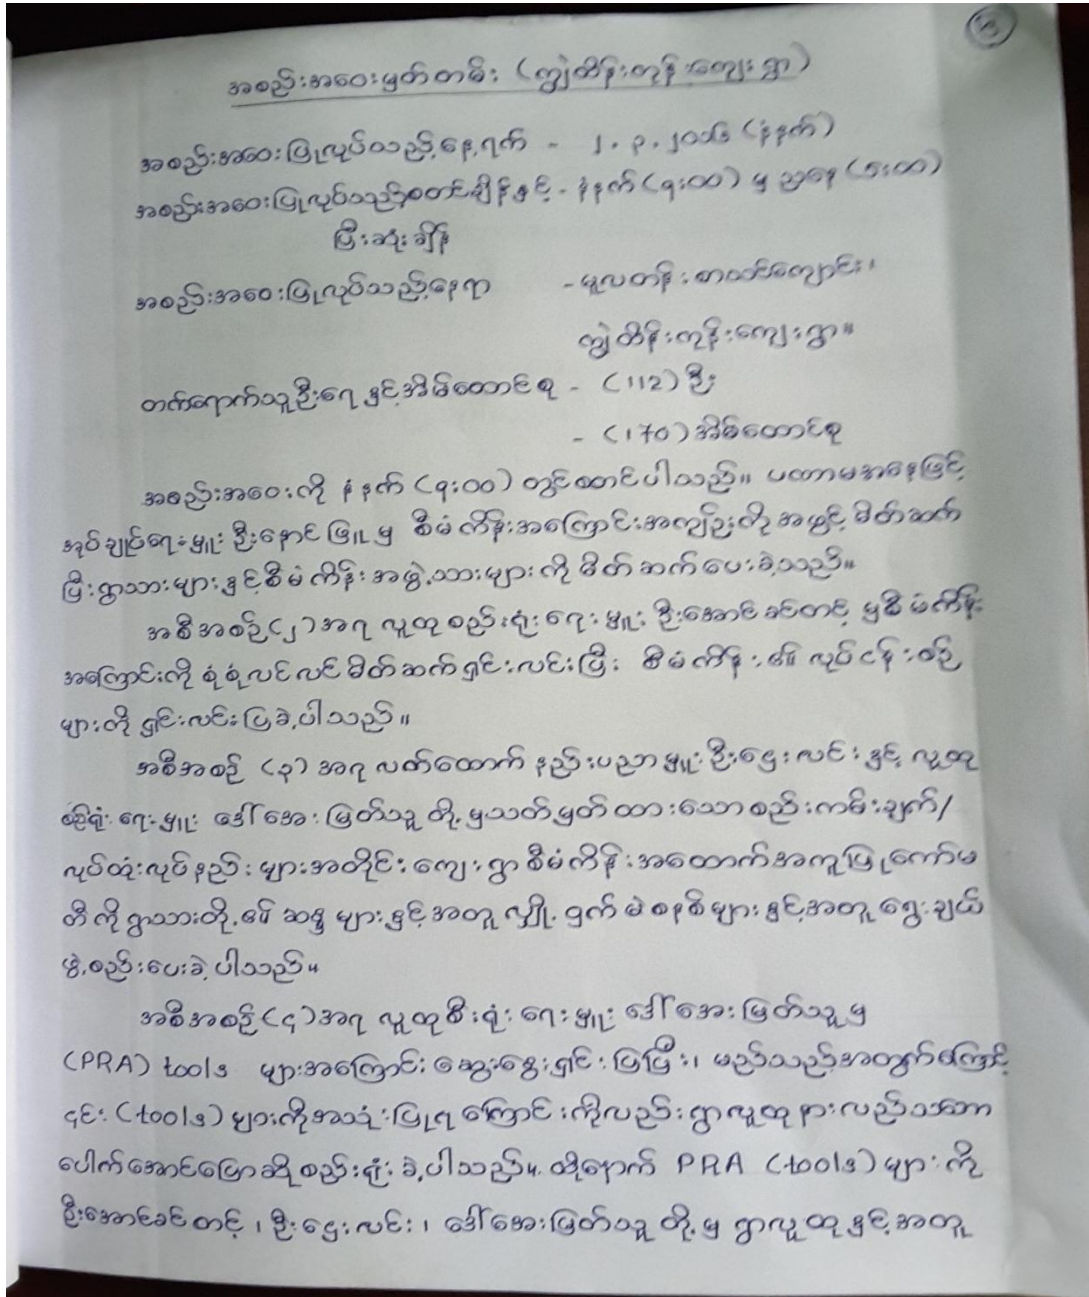 အစည်းအဝေးမှတ်တမ်း (ကျွဲထိန်းကုန်းကျေးရွာ)
အစည်းအဝေးပြုလုပ်သည့်နေ့ရက် - ၂.၃.၂၀၁၆ (နံနက်)
အစည်းအဝေးပြုလုပ်သည့်စတင်ချိန်နှင့် - နံနက် (၉:၀၀) မှ ညနေ (၅:၀၀)
ပြီးဆုံးချိန်
အစည်းအဝေးပြုလုပ်သည့်နေရာ - မူလတန်းစာသင်ကျောင်း၊
ကျွဲထိန်းကုန်းကျေးရွာ။
တက်ရောက်သူဦးရေနှင့်အိမ်ထောင်စု - (112) ဦး
- (170) အိမ်ထောင်စု
အစည်းအဝေးကို နံနက် (၉:၀၀) တွင်စတင်ပါသည်။ ပထမအနေဖြင့်
အုပ်ချုပ်ရေးမှူး ဦးနောင်ဖြူ မှ စီမံကိန်းအကြောင်းအကျဉ်းကို အဖွင့်မိတ်ဆက်
ပြီး ရွာသားများနှင့်စီမံကိန်းအဖွဲ့သားများကို မိတ်ဆက်ပေးခဲ့သည်။
အစီအစဉ်(၂)အရ လူထုစည်းရုံးရေးမှူး ဦးအောင်ခင်တင့် မှစီမံကိန်း
အကြောင်းကို ရှံရှံလင်လင်မိတ်ဆက်ရှင်းလင်းပြီး စီမံကိန်း၏ လုပ်ငန်းစဉ်
များကို ရှင်းလင်းပြခဲ့ပါသည်။
အစီအစဉ် (၃) အရ လက်ထောက် နည်းပညာမှူး ဦးဌေးလင်းနှင့် လူထု
စည်းရုံးရေးမှူး ဒေါ်အေးမြတ်သူ တို့မှသတ်မှတ်ထားသောစည်းကမ်းချက်/
လုပ်ထုံးလုပ်နည်းများအတိုင်း ကျေးရွာစီမံကိန်းအထောက်အကူပြုကော်မ
တီကိုရွာသားတို့၏ ဆန္ဒများနှင့်အတူ လျှို့ဝှက်မဲစနစ်များနှင့်အတူ ရွေးချယ်
ဖွဲ့စည်းပေးခဲ့ပါသည်။
အစီအစဉ်(၄)အရ လူထုစီးရုံးရေးမှူး ဒေါ်အေးမြတ်သူမှ
(PRA) tools များအကြောင်း ဆွေးနွေးရှင်းပြပြီး၊ မည်သည့်အတွက်ကြောင့်
၎င်း (tools) များကိုအသုံးပြုရကြောင်းကိုလည်း ရွာလူထုနားလည်သဘော
ပေါက်အောင်ပြောဆိုစည်းရုံးခဲ့ပါသည်။ ထို့နောက် PRA (tools) များကို
ဦးအောင်ခင်တင့်၊ ဦးဌေးလင်း၊ ဒေါ်အေးမြတ်သူ တို့မှ ရွာလူထုနှင့်အတူ